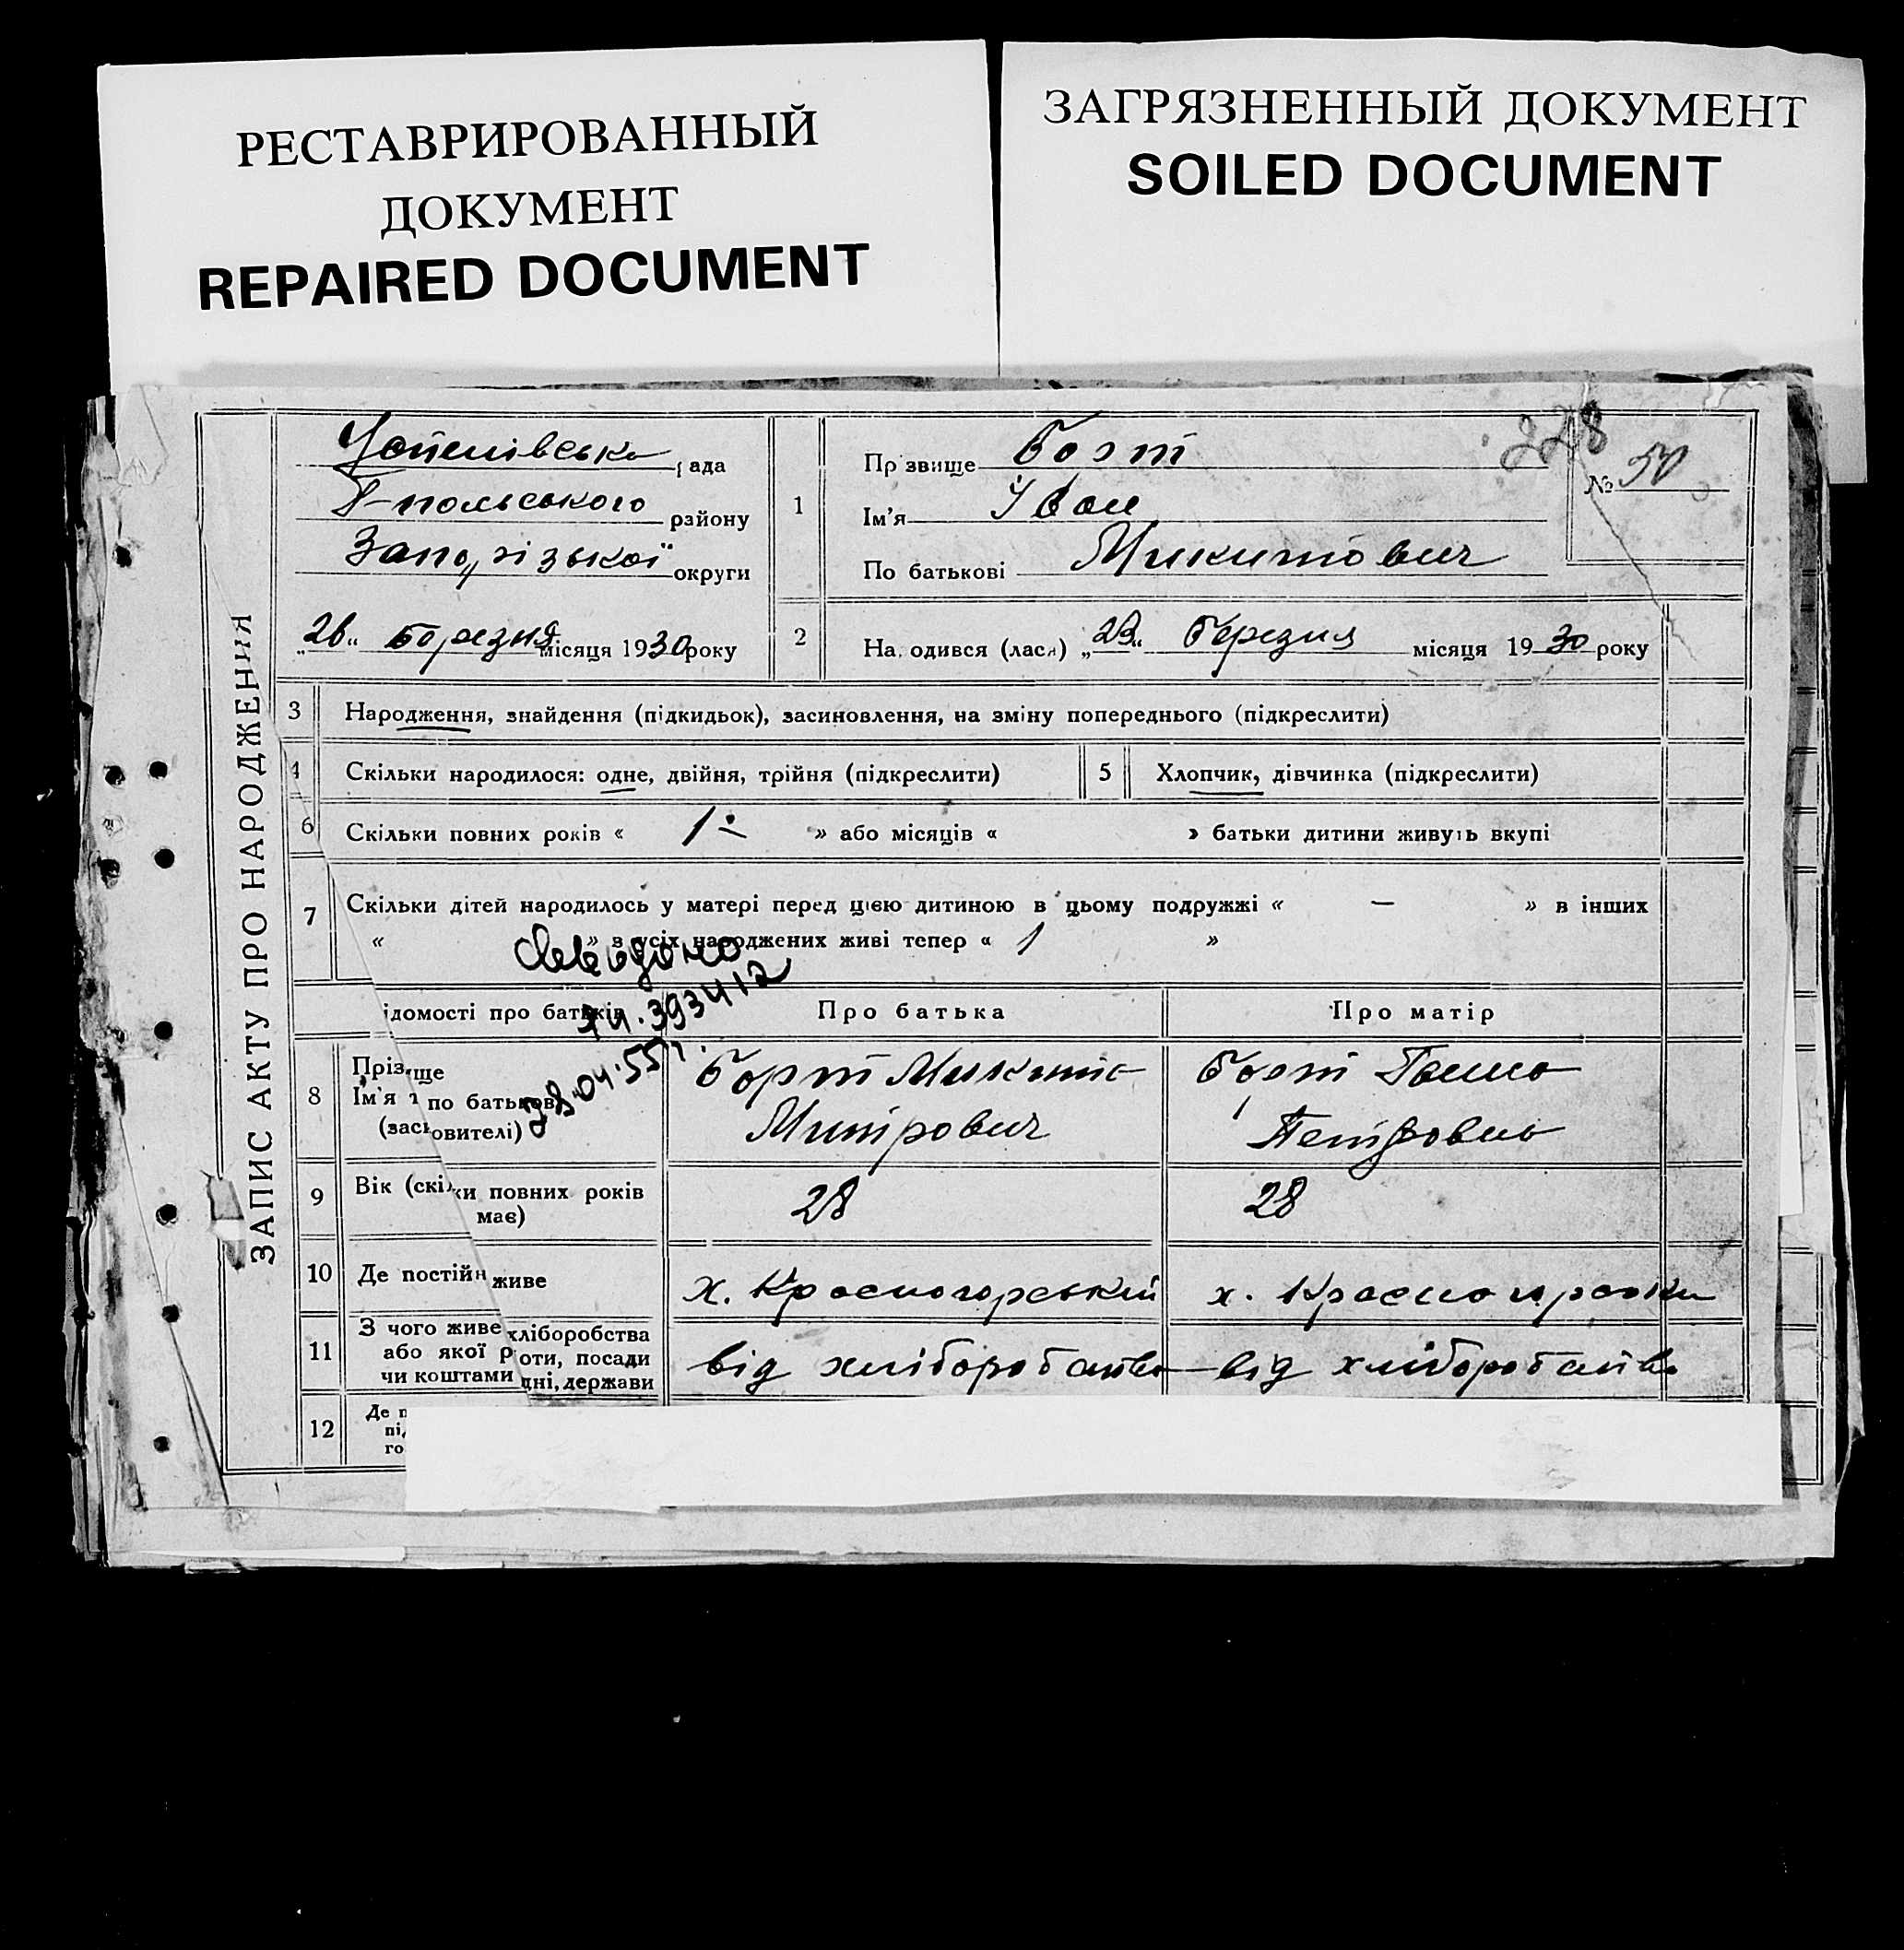 РЕСТАВРИРОВАННЫЙ
ДОКУМЕНТ
REPAIRED DOCUMENT
ЗАГРЯЗНЕННЫЙ ДОКУМЕНТ
SOILED DOCUMENT
ЗАПИС АКТУ ПРО НАРОДЖЕННЯ
рада
Г-польського району
Запорізької округи
„26“ березня місяця 1930 року
228
№ 50
1 Прізвище Борт
Ім'я Іван
По батькові Микитович
2 Народився (лася) „23“ березня місяця 1930 року
3 Народження, знайдення (підкидьок), засиновлення, на зміну попереднього (підкреслити)
4 Скільки народилося: одне, двійня, трійня (підкреслити)
5 Хлопчик, дівчинка (підкреслити)
6 Скільки повних років « 1 » або місяців « » батьки дитини живуть вкупі
7 Скільки дітей народилось у матері перед цією дитиною в цьому подружжі « — » в інших
« » з усіх народжених живі тепер « 1 »
393412
28.04.55г.
ідомості про батьків
Про батька
Про матір
8 Прізвище
Ім'я т по батькові
(засновителі)
Борт Микита
Митрович
Борт Ганна
Петровна
9 Вік (скільки повних років
має)
28
28
10 Де постійн живе
х. Красногорський
х. Красногорський
11 З чого живе хліборобства
або якої роти, посади
чи коштами дні, держави
від хліборобства
від хліборобства
12 Де п
під
го